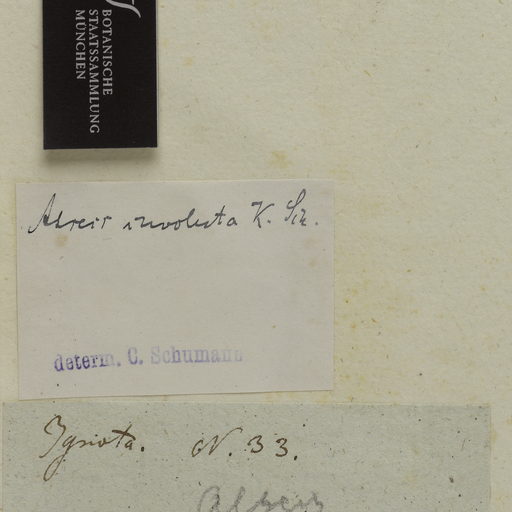 BOTANISCHE
STAATSSAMMLUNG
MÜNCHEN
Alseis involuta K. Sch.
determ. C. Schumann
Ignota. N. 33.
Alseis